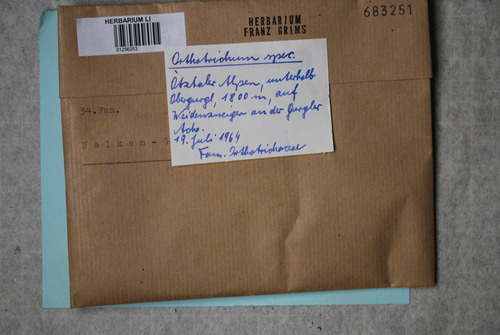 HERBARIUM LI
01256253
HERBARIUM
FRANZ GRIMS
683251
Orthotrichum spec.
Ötztaler Alpen, unterhalb
Obergurgl, 1800 m, auf
Weidenzweigen an der Gurgler
Ache.
19. Juli 1964
Fam. Orthotrichaceae
34.Fam.
Nelken-G